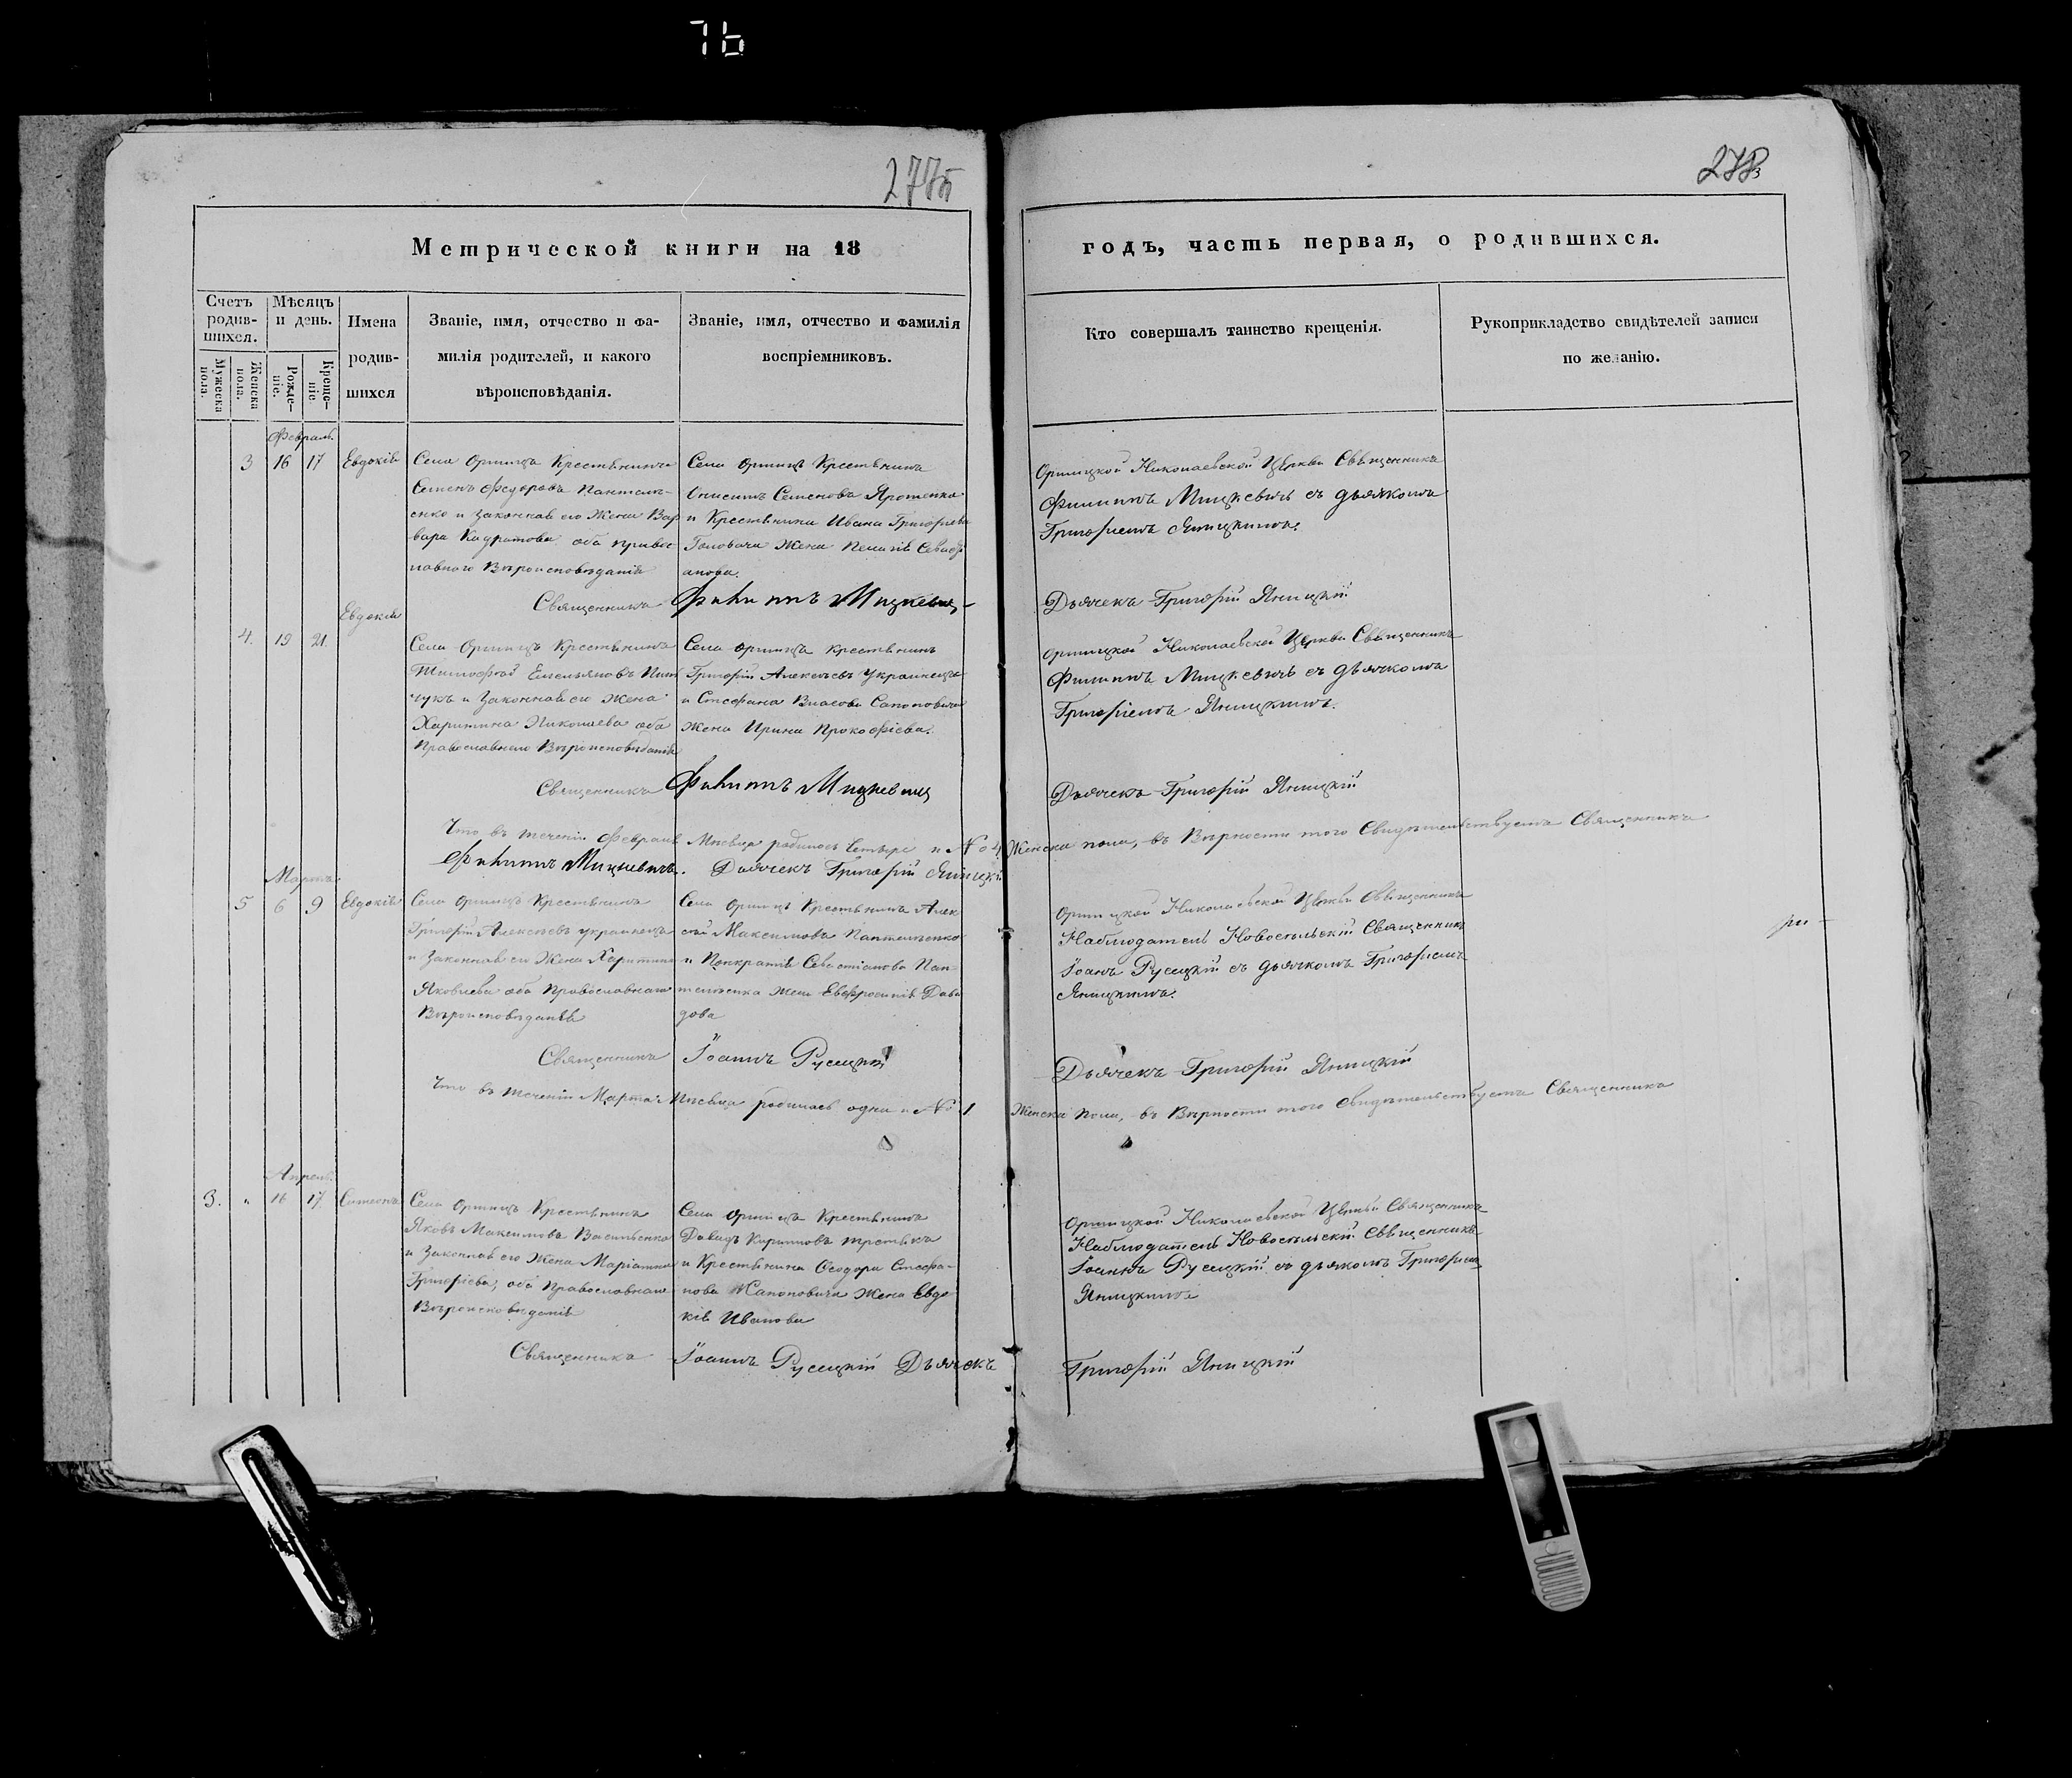 76
277об
278
Метрической книги на 18
годъ, часть первая, о родившихся.
Счетъ родив-шихся.
Мужеска пола.
Женска пола.
Мѣсяцъ и день.
Рожде-ніе.
Креще-ніе
Имена
родив-
шихся
Званіе, имя, отчество и фа-
милія родителей, и какого
вѣроисповѣданія.
Званіе, имя, отчество и фамилія
воспріемниковъ.
Кто совершалъ таинство крещенія.
Рукоприкладство свидѣтелей записи
по желанію.
Февраль
3 16 17 Евдокія
Села Крестьянинъ
Семенъ Федоровъ Пантеле-
енко и законная его Жена Вар
вара оба правос
лавного Вѣроисповѣданія
Села Крестьянинъ
Онисимъ Семеновъ Яроменко
и Крестьянина Ивана Григорьева
Головача Жена
анова.
Николаевской Церкви Священникъ
Филиппъ Мицкевичъ съ дьячкомъ
Григоріемъ Яницкимъ.
Священникъ Филиппъ Мицкевичъ
Дьячекъ Григорій Яницкій
Евдокія
4. 19 21
Села Крестьянинъ
Тимофей Емельяновъ
и Законная его Жена
Харитина Николаева оба
Православнаго Вѣроисповѣданія
Села крестьянинъ
Григорій Алексѣевъ Украинецъ
и Стефана Власова Сапоновича
жена Ирина Прокофіева.
Николаевской Церкви Священникъ
Филиппъ Мицкевичъ съ дьячкомъ
Григоріемъ Яницкимъ.
Священникъ Филиппъ Мицкевичъ
Дьячекъ Григорій Яницкій
Что въ теченіи Февраля Мѣсяца родилось Четыре и № 4 Женска пола, въ Вѣрности того Свидѣтельствуемъ Священникъ
Филиппъ Мицкевичъ. Дьячекъ Григорій Яницкій
Мартъ
5 6 9 Евдокія
Села Крестьянинъ
Григорій Алексѣевъ украинецъ
и Законная его Жена Харитина
Яковлева оба Православнаго
Вѣроисповѣданія
Села Крестьянинъ Алек
сѣй Максимовъ Пантелѣенко
и Панкратія Севастіанова Пан-
телѣенка жена Евфросинія Дави
дова
Николаевской Церкви Священникъ
Наблюдатель Новосельскій Священникъ
Іоанъ Русецкій съ дьячкомъ Григоріемъ
Яницкимъ.
Священникъ Іоаннъ Русецкій
Дьячекъ Григорій Яницкій
Что въ теченіи Марта Мѣсяца родилась одна и № 1 Женска пола, въ Вѣрности того Свидѣтельствуетъ Священникъ
Апрель
3. " 16 17 Симеонъ
Села Крестьянинъ
Яковъ Максимовъ Василенко
и Законная его Жена Маріанна
Григорьева, оба Православнаго
Вѣроисповѣданія
Села Крестьянинъ
Давидъ Кириловъ третьякъ
и Крестьянина Феодора Стефа-
нова Жена Евдо
кія Иванова
Николаевской Церкви Священникъ
Наблюдатель Новосельскій Священникъ
Іоаннъ Русецкій съ дьячкомъ Григоріемъ
Яницкимъ
Священникъ Іоаннъ Русецкій Дьячекъ Григорій Яницкій